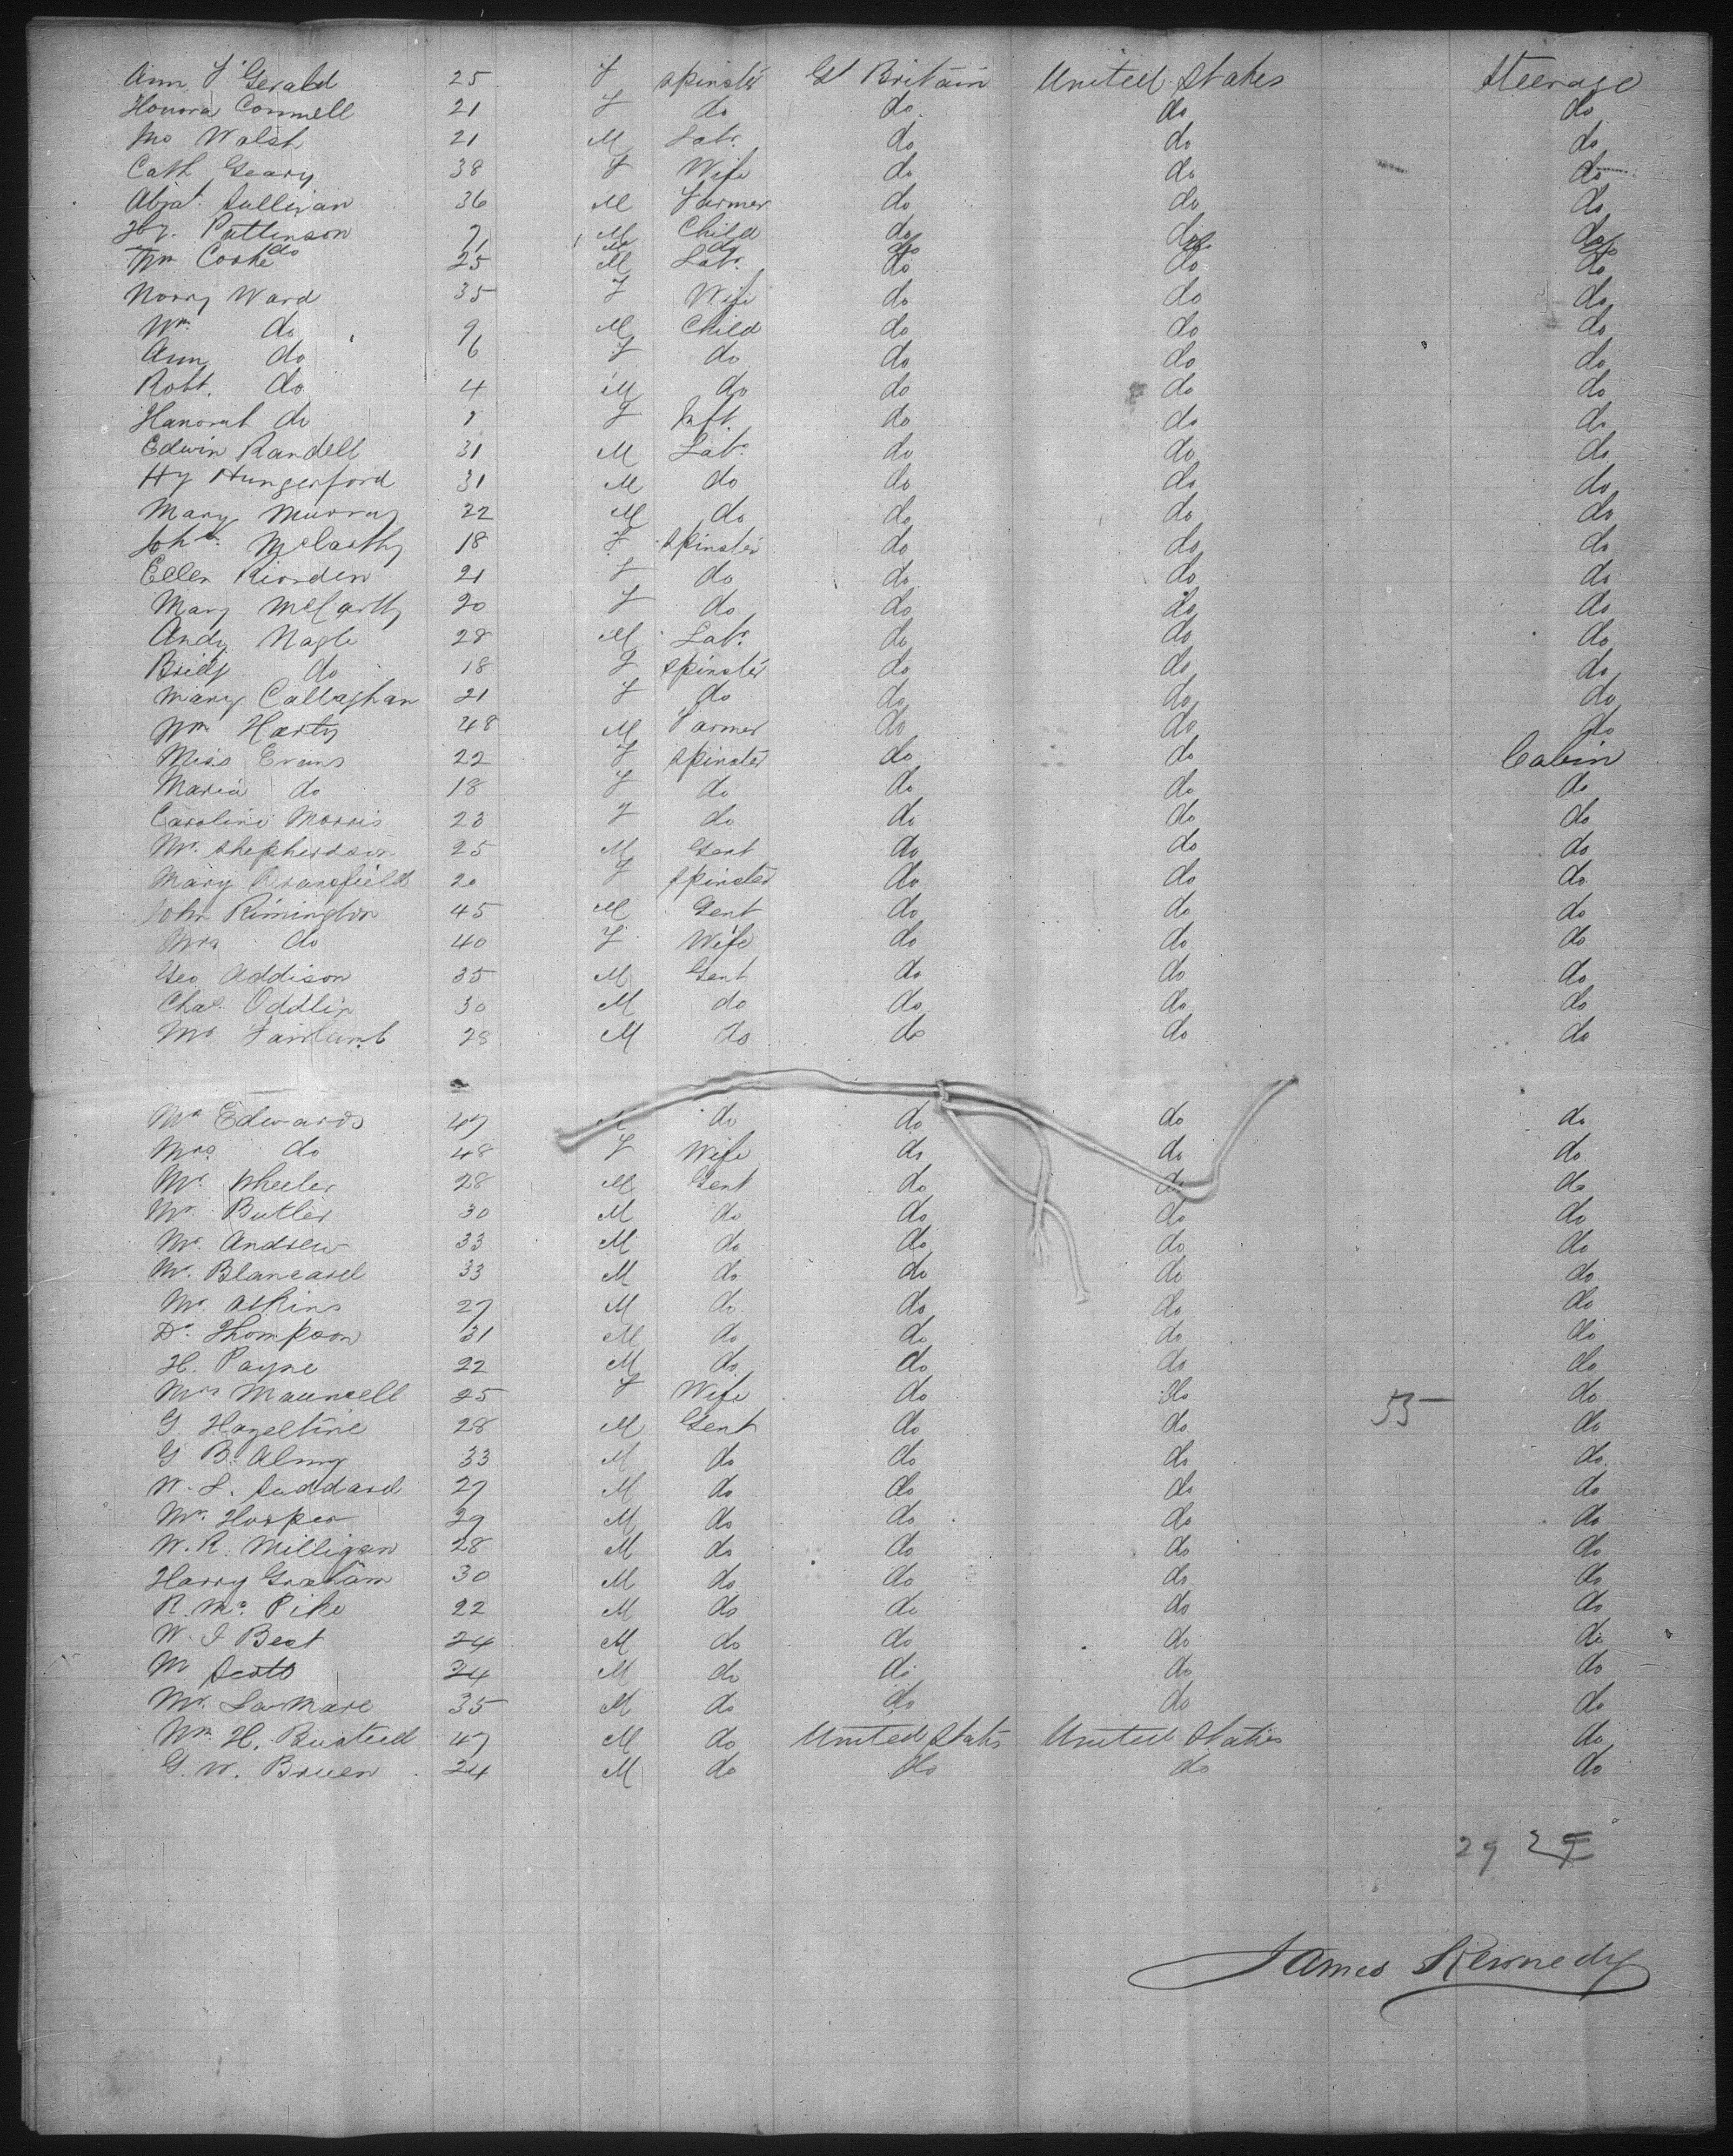 Ann F'Gerald 25 F Spinster Gt Britain United States Steerage
Honora Connell 21 F do do do do
Jno Walsh 21 M Labr. do do do
Cath Geary 38 F Wife do do do
Abjat. Sullivan 36 M Farmer do do do
Hy. Pattinson 7 M Child do do do
do M do do do do
Wm Cooke 25 M Labr. do do do
Norry Ward 35 F Wife do do do
Wm. do 9 M Child do do do
Ann do 6 F do do do do
Robt. do 4 M do do do do
Hanorah do 1 F Inft. do do do
Edwin Randell 31 M Labr. do do do
Hy Hungerford 31 M do do do do
Mary Murray 22 M do do do do
Joha. McCarthy 18 F Spinster do do do
Ellen Riorden 21 F do do do do
Mary McCarthy 20 F do do do do
Andy Nagle 28 M Labr. do do do
Bridg do 18 F Spinster do do do
Mary Callaghan 21 F do do do do
Wm Harty 48 M Farmer do do do
Miss Evans 22 F Spinster do do Cabin
Maria do 18 F do do do do
Caroline Morris 23 F do do do do
Mr. Shepherdson 25 M Gent do do do
Mary Dransfield 20 F Spinster do do do
John Rimington 45 M Gent do do do
Mrs do 40 F Wife do do do
Geo Addison 35 M Gent do do do
Chas. Oddlin 30 M do do do do
Mr Fairlamb 28 M do do do do
Mr Edwards 47 M do do do do
Mrs. do 48 F Wife do do do
Mr. Wheeler 28 M Gent do do do
Mr. Butler 30 M do do do do
Mr. Andrew 33 M do do do do
Mr. Blancard 33 M do do do do
Mr. Atkins 27 M do do do do
Dr. Thompson 31 M do do do do
H. Payne 22 M do do do do
Mrs Maunsell 25 F Wife do do do
G Hazeltine 28 M Gent do do 53 do
G B. Almy 33 M do do do do
W. L. Suddard 27 M do do do do
Mr. Hosper 29 M do do do do
W. R. Milligan 28 M do do do do
Harry Graham 30 M do do do do
R. Mc. Pike 22 M do do do do
W. J Best 24 M do do do do
M Scott 24 M do do do do
Mr. Lamare 35 M do do do do
Wm H. Busteed 47 M do United States United States do
G. W. Bruen 24 M do do do do
29
James Kennedy